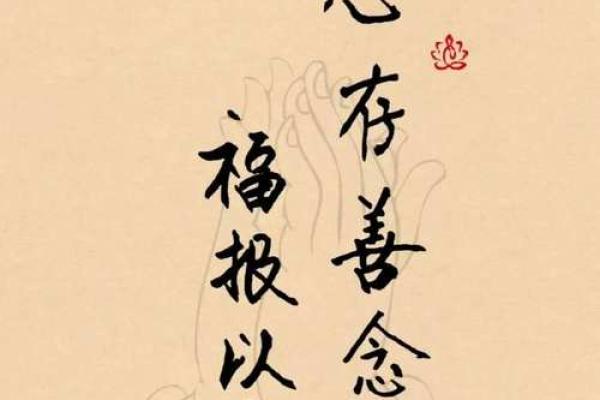 心存善念
福报以